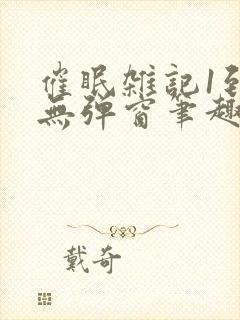 催眠雑記1至
無彈窗筆趣
戴奇